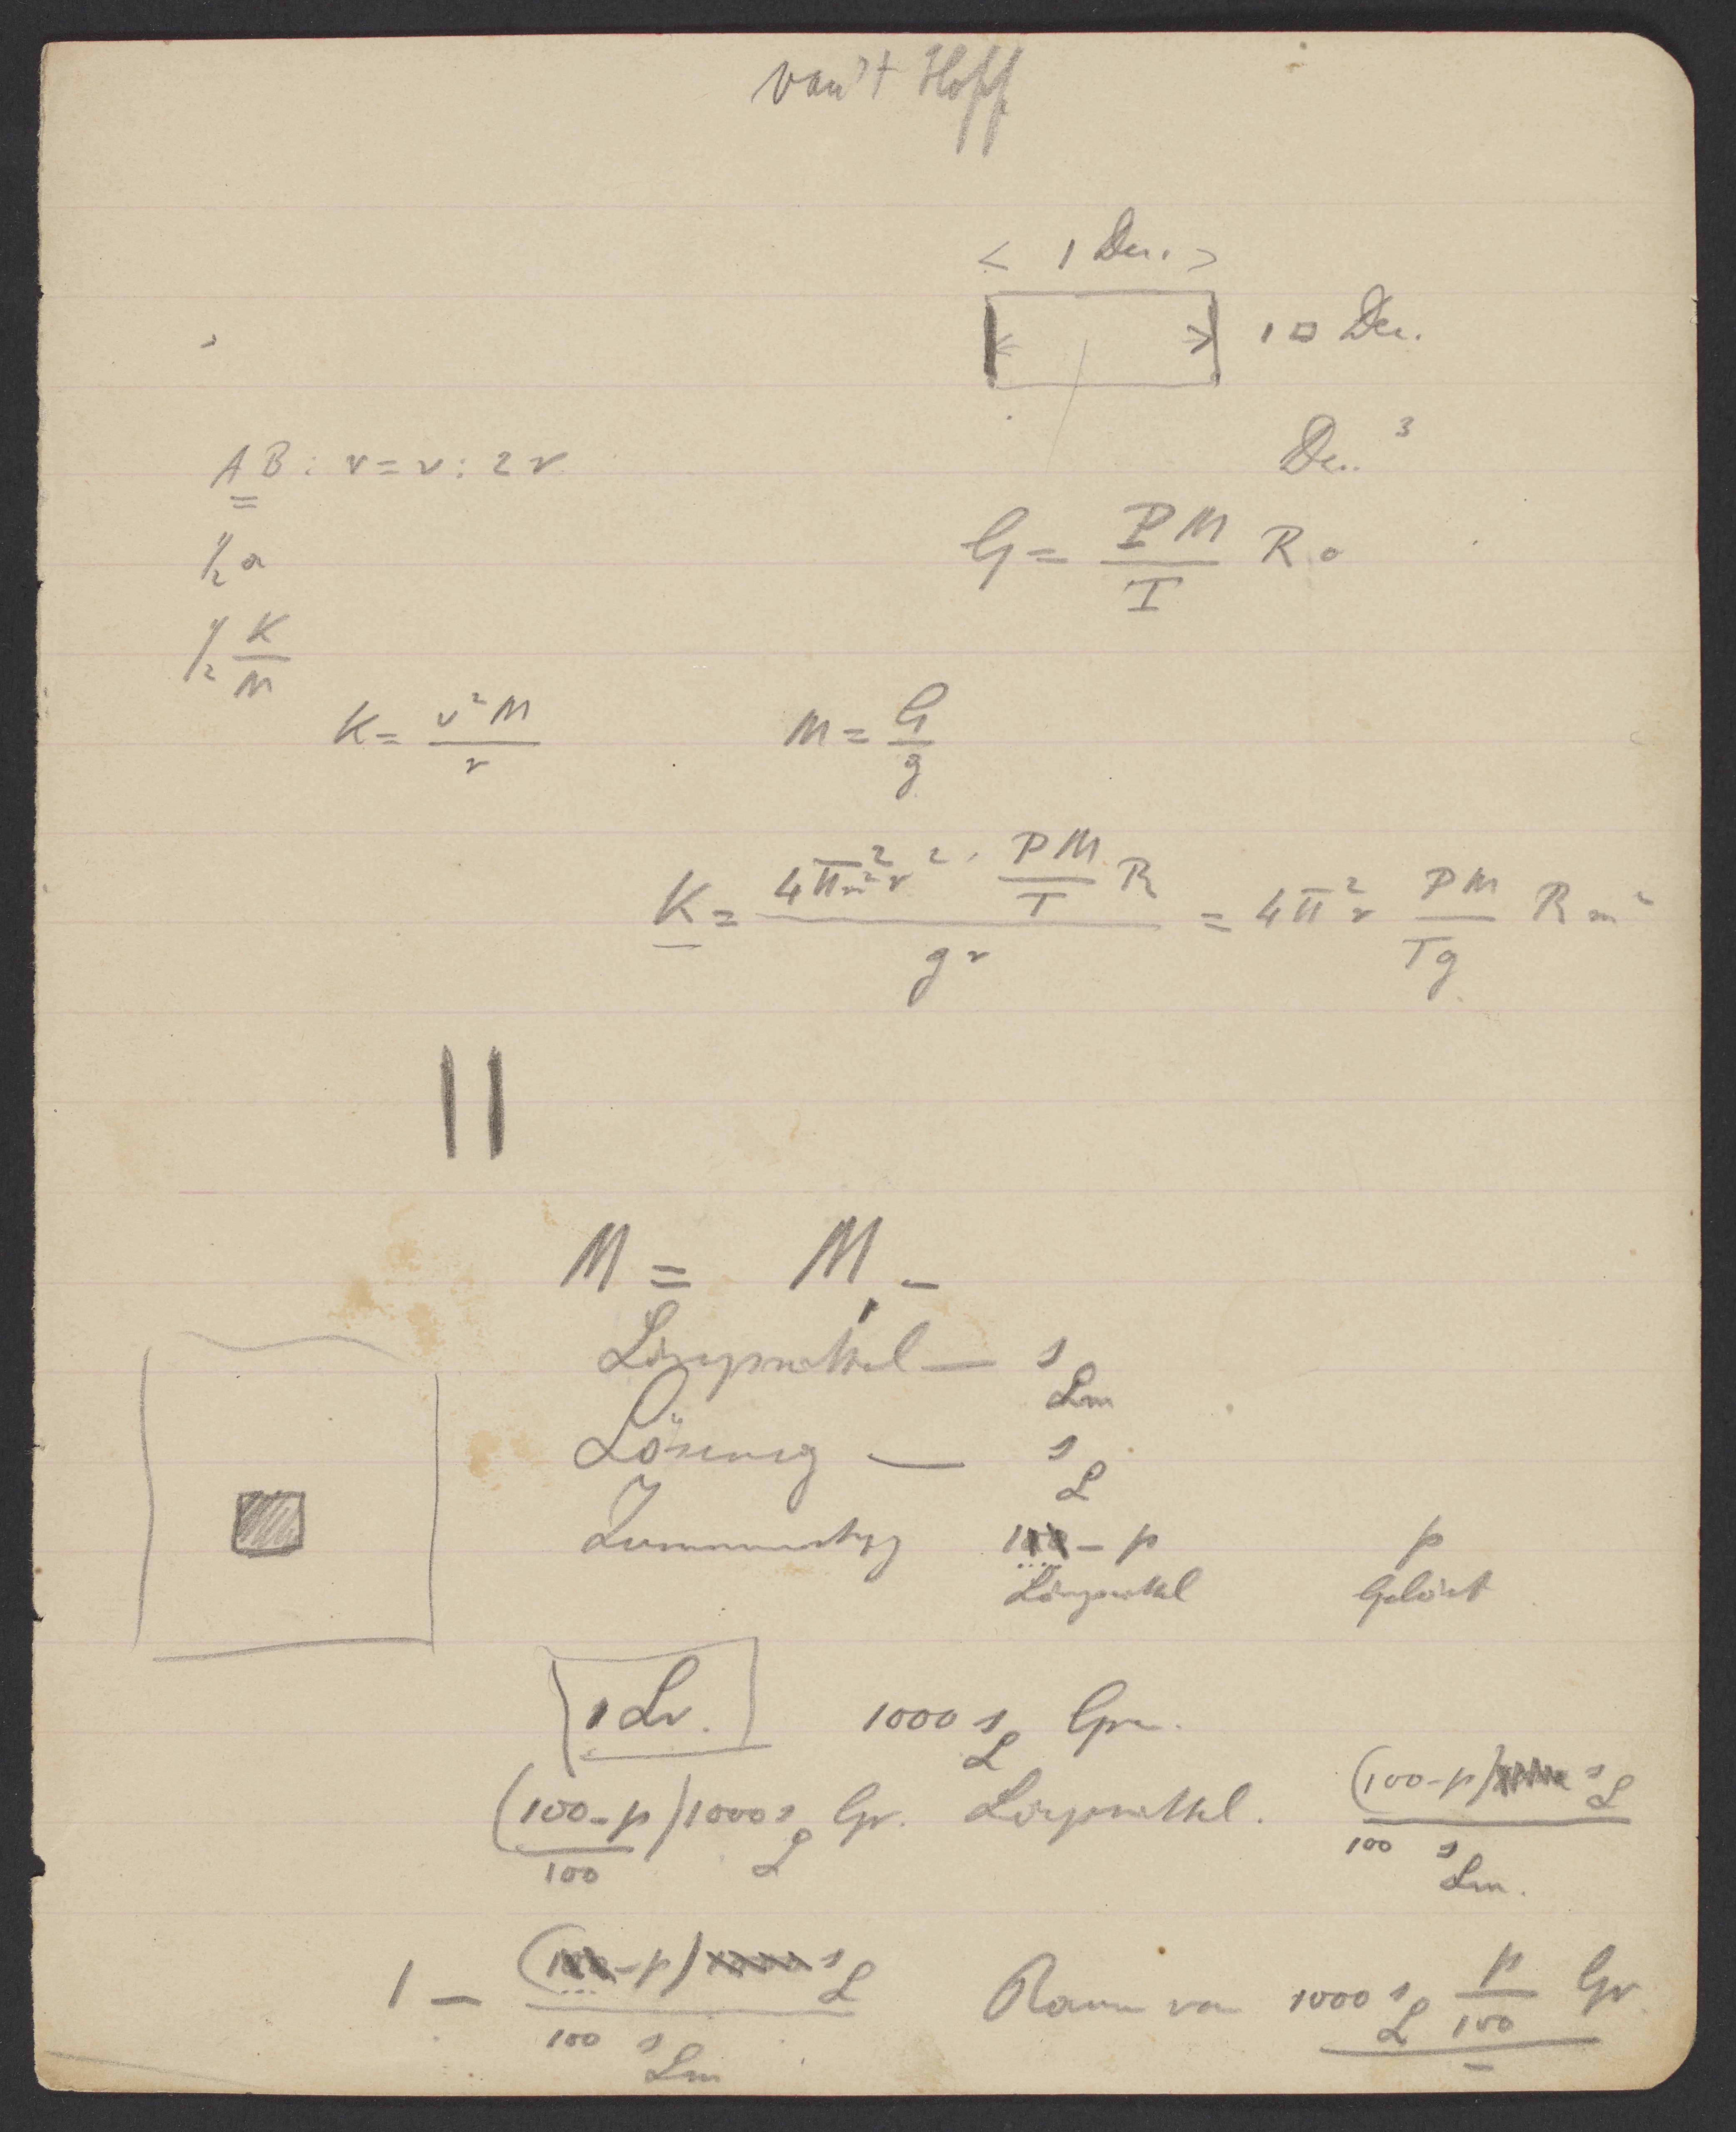 van't Hoff
< 1 Dec. >
1 □ Dec.
Dec.³
AB : v = v : 2r
G = PM/T R
1/2 a
1/2 K/M
K = v²M/r
M = G/g
K = (4π²m²r² · PM/T R)/(gr) = 4π²r PM/Tg R m²
II
M = M -
Lösungsmittel — s_Lm
Lösung — s_L
100 - p p
Lösungsmittel Gelöst
1 Ltr. 1000 s_L Grm.
(100-p)/100 1000 s_L Gr. Lösungsmittel. (100-p) s_L / 100 s_Lm.
1 - (100-p) s_L / 100 s_Lm Raum von 1000 s_L p/100 Gr.